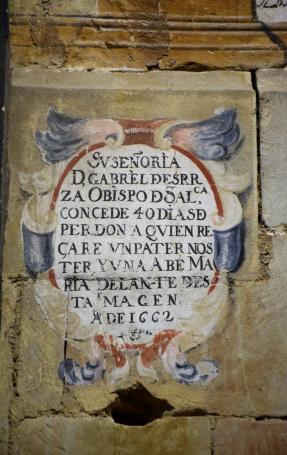 SV SEÑORIA
D. GABRÌEL DESRR
ZA OBÌSPO DÐ SALCA
CONCEDE 40 DIAS Ð
PERDON A QVIEN RE
ÇARE VN PATER NOS
TER, Y VNA ABE MA
RÌA DELANTE DES
TA IMAGEN
A DE 1662